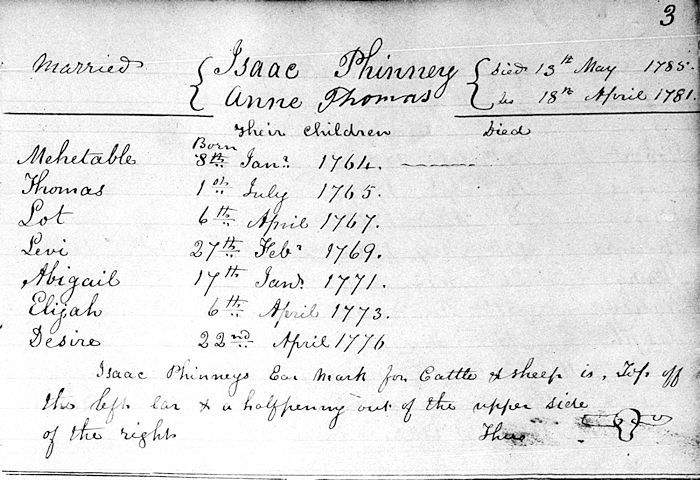 3
Married { Isaac Phinney { died 13th May 1785.
Anne Thomas do 18th April 1781.
Their Children Died
Born
Mehetable 8th Jany 1764.
Thomas 1st July 1765.
Lot 6th April 1767.
Levi 27th Feby 1769.
Abigail 17th Jany 1771.
Elijah 6th April 1773.
Desire 22nd April 1776
Isaac Phinneys Ear Mark for Cattle & sheep is, Top off
the left ear & a halfpenny out of the upper side
of the right Thus